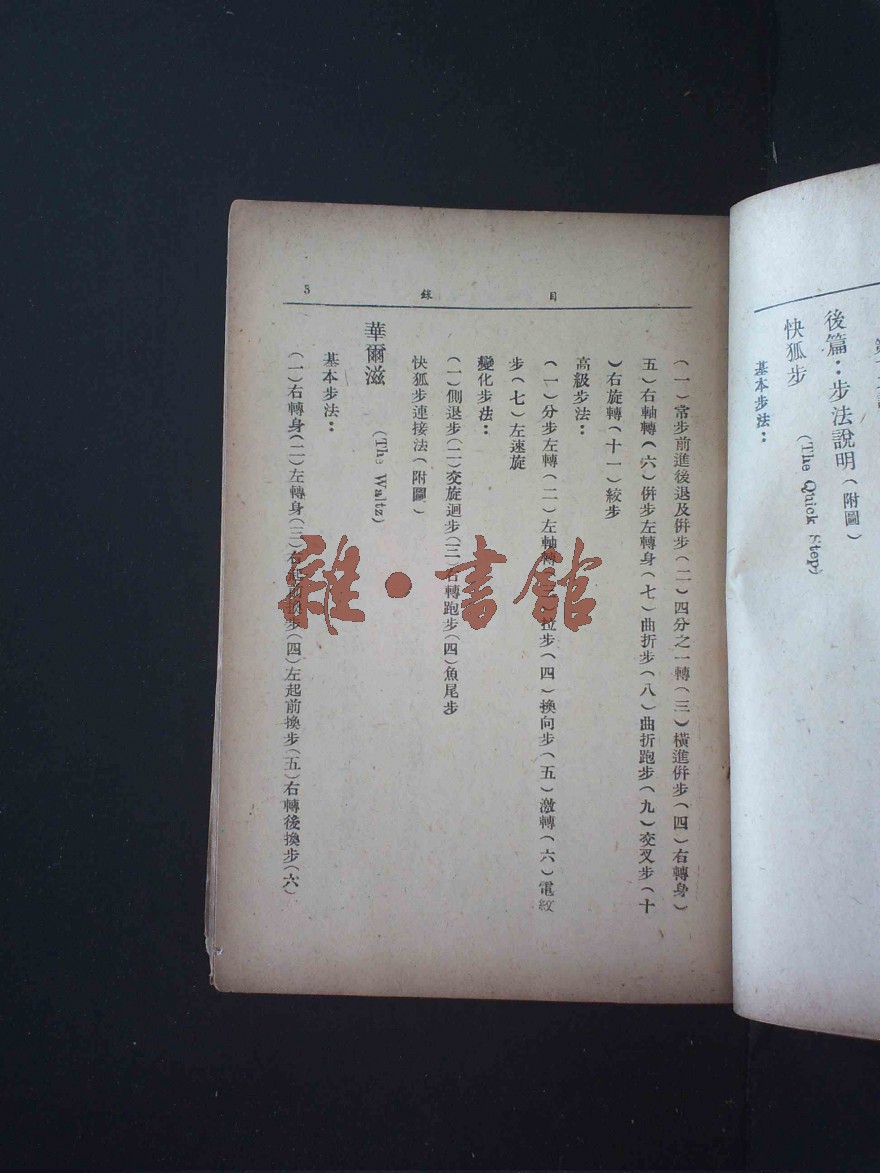 後篇：步法說明（附圖）
快狐步 (The Quick Step)
基本步法：
目 錄 5
（一）常步前進後退及併步（二）四分之一轉（三）橫進併步（四）右轉身（
五）右軸轉（六）併步左轉身（七）曲折步（八）曲折跑步（九）交叉步（十
）右旋轉（十一）絞步
高級步法：
（一）分步左轉（二）左軸轉（三）拉步（四）換向步（五）激轉（六）電紋
步（七）左速旋
變化步法：
（一）側退步（二）交旋迴步（三）右轉跑步（四）魚尾步
快狐步連接法（附圖）
華爾滋 (The Waltz)
基本步法：
（一）右轉身（二）左轉身（三）右起前換步（四）左起前換步（五）右轉後換步（六）
雜·書館